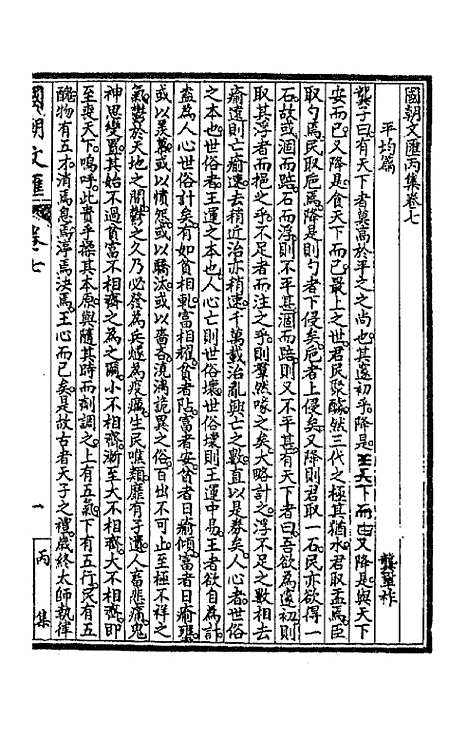 國朝文匯丙集卷七
平均篇
龔鞏祚
龔子曰有天下者莫高於平之之尚也其邃初乎降是安天下而已又降是與天下
安而已又降是食天下而已最上之世君民聚醵然三代之極其猶水君取盂焉臣
取勺焉民取卮焉降是則勺者下侵矣卮者上侵矣又降則君取一石民亦欲得一
石故或涸而踣石而浮則不平甚涸而踣則又不平甚有天下者曰吾欲為邃初則
取其浮者而挹之乎不足者而注之乎則羣然喙之矣大略計之浮不足之數相去
愈遠則亡愈速去稍近治亦稍速千萬載治亂興亡之數直以是券矣人心者世俗
之本也世俗者王運之本也人心亡則世俗壞世俗壞則王運中易王者欲自為計
盍為人心世俗計矣有如貧相軋富相耀貧者阽富者安貧者日愈傾富者日愈壅
或以羨慕或以憤怨或以驕汰或以嗇吝澆漓詭異之俗百出不可止至極不祥之
氣鬱於天地之間鬱之久乃必發為兵燧為疫癘生民噍類靡有孑遺人畜悲痛鬼
神思變置其始不過貧富不相齊之為之爾小不相齊漸至大不相齊大不相齊即
至喪天下嗚呼此貴乎操其本原與隨其時而劑調之上有五氣下有五行民有五
醜物有五才消焉息焉渟焉決焉王心而已矣是故古者天子之禮歲終太師執律
國朝文匯
卷七
一
丙集